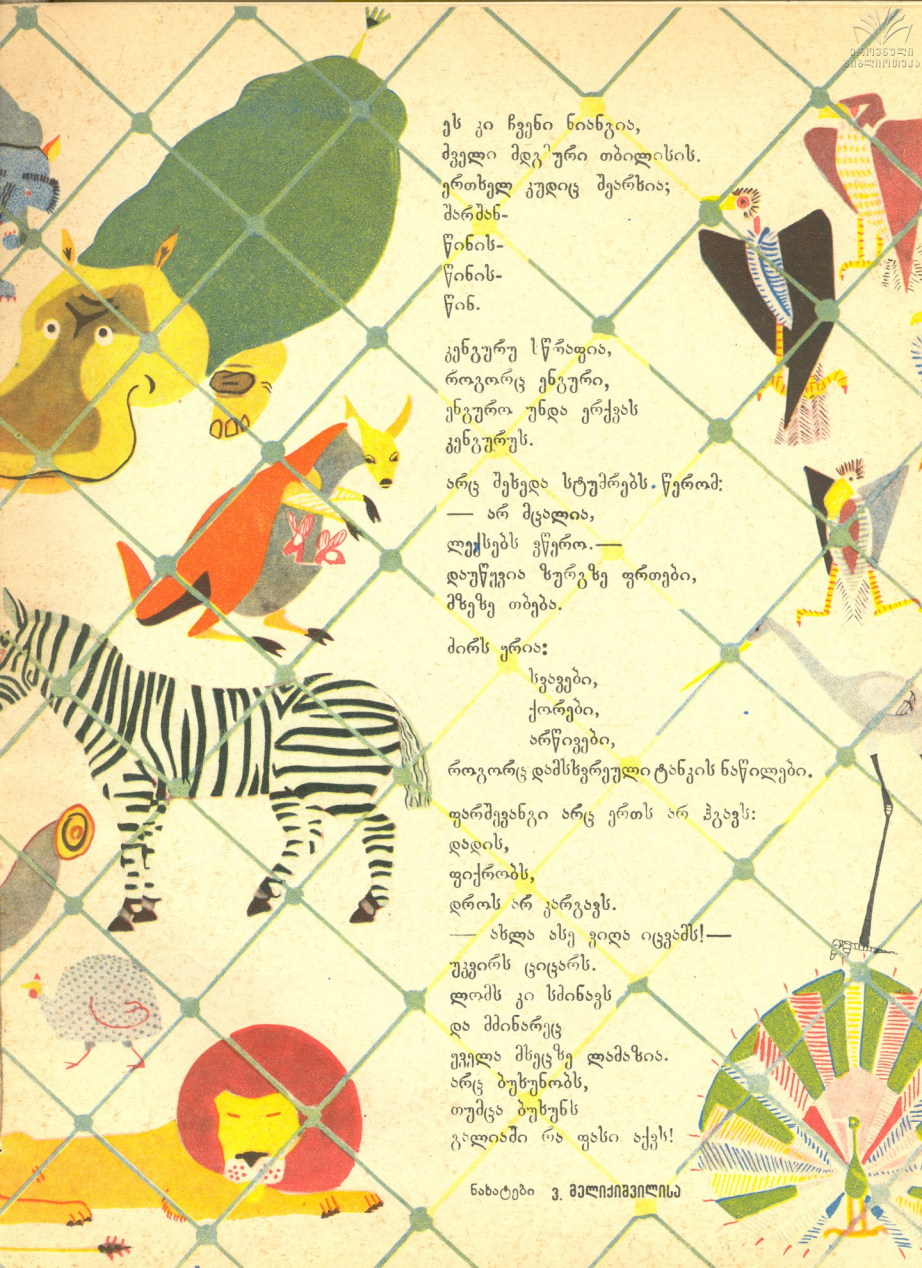 ეროვნული
ბიბლიოთეკა
ეს კი ჩვენი ნიანგია,
ძველი მდგმური თბილისის.
ერთხელ კუდიც შეარხია;
შარშან-
წინის-
წინის-
წინ.
კენგურუ სწრაფია,
როგორც ენგური,
ენგურო უნდა ერქვას
კენგურუს.
არც შეხედა სტუმრებს წერომ:
— არ მცალია,
ლექსებს ვწერო.—
დაუწყვია ზურგზე ფრთები,
მზეზე თბება.
ძირს ყრია:
სვავები,
ქორები,
არწივები,
როგორც დამსხვრეული ტანკის ნაწილები.
ფარშევანგი არც ერთს არ ჰგავს:
დადის,
ფიქრობს,
დროს არ კარგავს.
— ახლა ასე ვიღა იცვამს!—
უკვირს ციცარს.
ლომს კი სძინავს
და მძინარეც
ყველა მხეცზე ლამაზია.
არც ბუხუნობს,
თუმცა ბუხუნს
გალიაში რა ფასი აქვს!
ნახატები ვ. მელიქიშვილისა